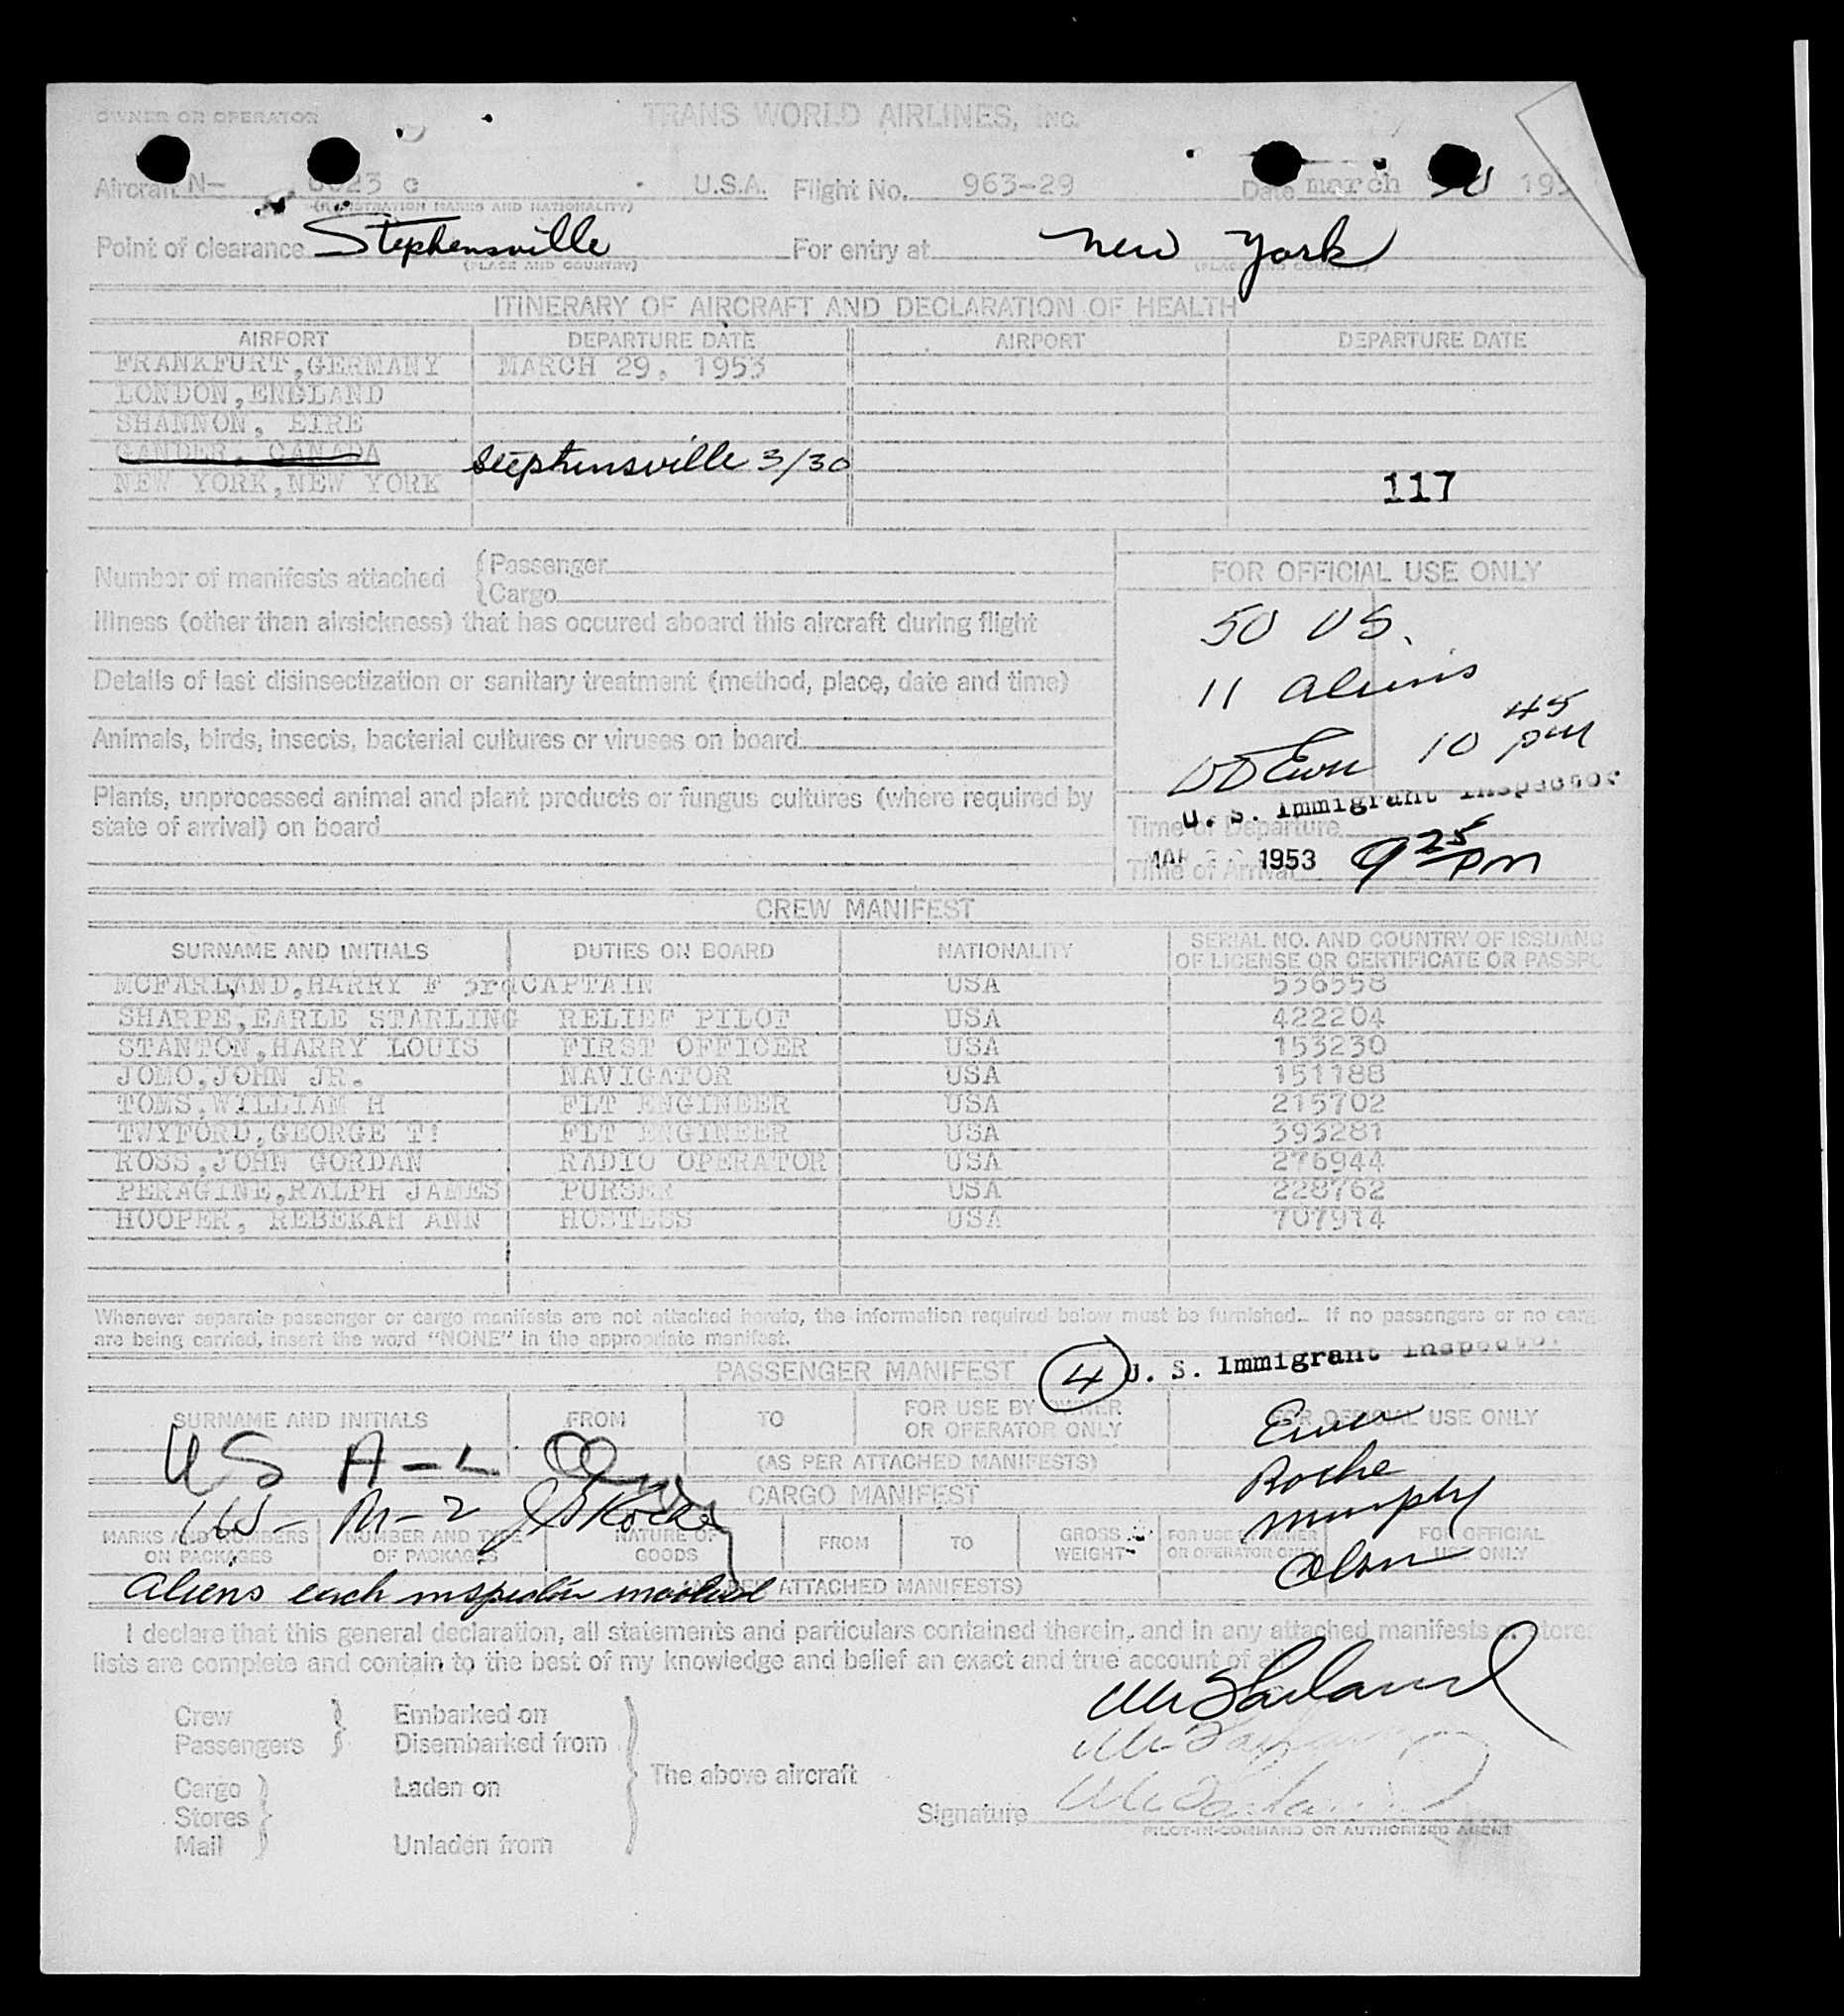 OWNER OR OPERATOR TRANS WORLD AIRLINES, INC.
Aircraft N- 6023 c U.S.A. Flight No. 963-29 Date march 30 195
(REGISTRATION MARKS AND NATIONALITY)
Point of clearance Stephensville For entry at new york
(PLACE AND COUNTRY) (PLACE AND COUNTRY)
ITINERARY OF AIRCRAFT AND DECLARATION OF HEALTH
AIRPORT DEPARTURE DATE AIRPORT DEPARTURE DATE
FRANKFURT,GERMANY MARCH 29, 1953
LONDON,ENGLAND
SHANNON, EIRE
GANDER, CANADA Stephensville 3/30
NEW YORK,NEW YORK 117
Number of manifests attached { Passenger
Cargo
FOR OFFICIAL USE ONLY
50 US.
11 aliens
10 45 pm
U. S. Immigrant Inspector
Illness (other than airsickness) that has occured aboard this aircraft during flight
Details of last disinsectization or sanitary treatment (method, place, date and time)
Animals, birds, insects, bacterial cultures or viruses on board
Plants, unprocessed animal and plant products or fungus cultures (where required by
state of arrival) on board
Time of Departure
MAR 1953 9 25 pm
Time of Arrival
CREW MANIFEST
SURNAME AND INITIALS DUTIES ON BOARD NATIONALITY SERIAL NO. AND COUNTRY OF ISSUANC
OF LICENSE OR CERTIFICATE OR PASSPO
MCFARLAND,HARRY F 3rd CAPTAIN USA 536558
SHARPE,EARLE STARLING RELIEF PILOT USA 422204
STANTON,HARRY LOUIS FIRST OFFICER USA 153230
JOMO,JOHN JR. NAVIGATOR USA 151188
TOMS,WILLIAM H FLT ENGINEER USA 215702
TWYFORD,GEORGE T! FLT ENGINEER USA 393281
ROSS,JOHN GORDAN RADIO OPERATOR USA 276944
PERAGINE,RALPH JAMES PURSER USA 228762
HOOPER, REBEKAH ANN HOSTESS USA 707914
Whenever separate passenger or cargo manifests are not attached hereto, the information required below must be furnished. If no passengers or no carg
are being carried, insert the word "NONE" in the appropriate manifest.
PASSENGER MANIFEST 4 U. S. Immigrant Inspector
SURNAME AND INITIALS FROM TO FOR USE BY OWNER
OR OPERATOR ONLY
FOR OFFICIAL USE ONLY
(AS PER ATTACHED MANIFESTS)
US A-L
US- M-2 Roche
Roche
Murphy
Olsen
CARGO MANIFEST
MARKS AND NUMBERS
ON PACKAGES
NUMBER AND TYPE
OF PACKAGES
NATURE OF
GOODS
FROM TO GROSS
WEIGHT
FOR USE BY OWNER
OR OPERATOR ONLY
FOR OFFICIAL
USE ONLY
(AS PER ATTACHED MANIFESTS)
Aliens each inspector marked
I declare that this general declaration, all statements and particulars contained therein, and in any attached manifests or stores
lists are complete and contain to the best of my knowledge and belief an exact and true account of all
McFarland
McFarland
McFarland
Crew
Passengers
Embarked on
Disembarked from
Cargo
Stores
Mail
Laden on
Unladen from
The above aircraft
Signature
PILOT-IN-COMMAND OR AUTHORIZED AGENT